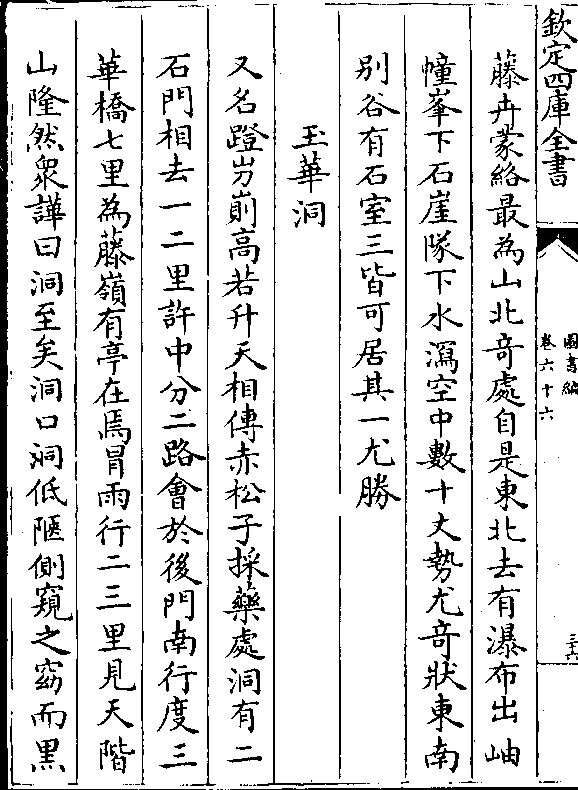 欽定四庫全書
圖書編
卷六十六
三十六
藤卉蒙絡最為山北奇處自是東北去有瀑布出岫
幢峯下石崖隊下水瀉空中數十丈勢尤奇狀東南
别谷有石室三皆可居其一尤勝
玉華洞
又名蹬岃崱高若升天相傳赤松子採藥處洞有二
石門相去一二里許中分二路會於後門南行度三
華橋七里為藤嶺有亭在焉冒雨行二三里見天階
山隆然衆譁曰洞至矣洞口洞低陿側窺之窈而黒